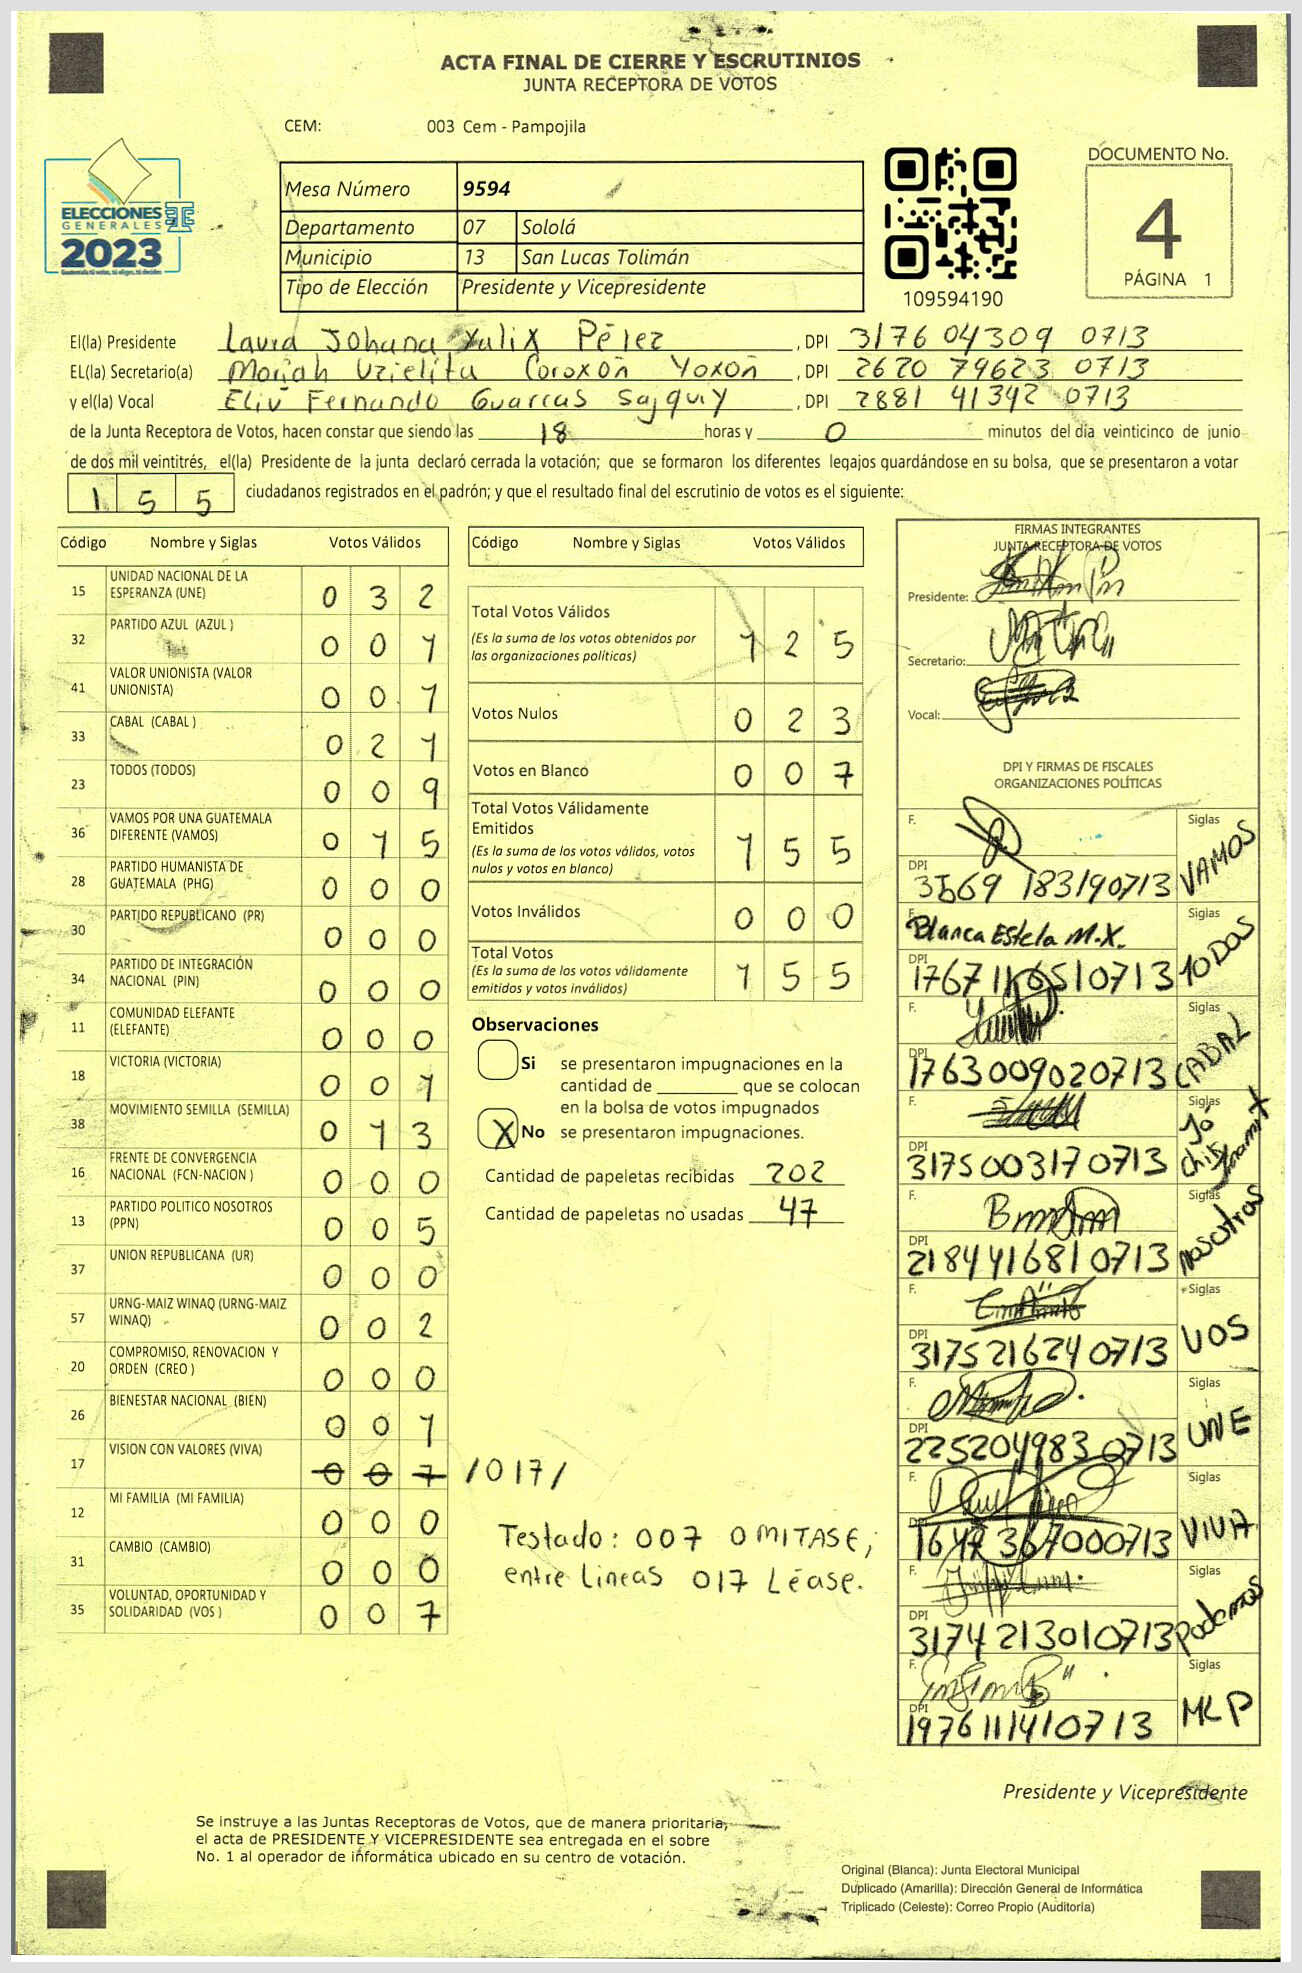 ACTA FINAL DE CIERRE Y ESCRUTINIOS
JUNTA RECEPTORA DE VOTOS
CEM: 003 Cem - Pampojila
ELECCIONES
GENERALES
2023
Guatemala tú votas, tú eliges, tú decides
Mesa Número 9594
Departamento 07 Sololá
Municipio 13 San Lucas Tolimán
Tipo de Elección Presidente y Vicepresidente
109594190
DOCUMENTO No.
4
PÁGINA 1
El(la) Presidente Laura Johana Xulix Pérez, DPI 3176 04309 0713
EL(la) Secretario(a) Moriah Uzielita Coroxón Yoxón, DPI 2620 79623 0713
y el(la) Vocal Eliú Fernando Guarcas Sajquiy, DPI 2881 41392 0713
de la Junta Receptora de Votos, hacen constar que siendo las 18 horas y 0 minutos del día veinticinco de junio
de dos mil veintitrés, el(la) Presidente de la junta declaró cerrada la votación; que se formaron los diferentes legajos guardándose en su bolsa, que se presentaron a votar
1 5 5 ciudadanos registrados en el padrón; y que el resultado final del escrutinio de votos es el siguiente:
Código Nombre y Siglas Votos Válidos
15 UNIDAD NACIONAL DE LA ESPERANZA (UNE) 0 3 2
32 PARTIDO AZUL (AZUL ) 0 0 1
41 VALOR UNIONISTA (VALOR UNIONISTA) 0 0 1
33 CABAL (CABAL ) 0 2 1
23 TODOS (TODOS) 0 0 9
36 VAMOS POR UNA GUATEMALA DIFERENTE (VAMOS) 0 1 5
28 PARTIDO HUMANISTA DE GUATEMALA (PHG) 0 0 0
30 PARTIDO REPUBLICANO (PR) 0 0 0
34 PARTIDO DE INTEGRACIÓN NACIONAL (PIN) 0 0 0
11 COMUNIDAD ELEFANTE (ELEFANTE) 0 0 0
18 VICTORIA (VICTORIA) 0 0 1
38 MOVIMIENTO SEMILLA (SEMILLA) 0 1 3
16 FRENTE DE CONVERGENCIA NACIONAL (FCN-NACION ) 0 0 0
13 PARTIDO POLITICO NOSOTROS (PPN) 0 0 5
37 UNION REPUBLICANA (UR) 0 0 0
57 URNG-MAIZ WINAQ (URNG-MAIZ WINAQ) 0 0 2
20 COMPROMISO, RENOVACION Y ORDEN (CREO ) 0 0 0
26 BIENESTAR NACIONAL (BIEN) 0 0 1
17 VISION CON VALORES (VIVA) 0 0 7 /017/
12 MI FAMILIA (MI FAMILIA) 0 0 0
31 CAMBIO (CAMBIO) 0 0 0
35 VOLUNTAD, OPORTUNIDAD Y SOLIDARIDAD (VOS ) 0 0 7
Código Nombre y Siglas Votos Válidos
Total Votos Válidos 1 2 5
(Es la suma de los votos obtenidos por
las organizaciones politicas)
Votos Nulos 0 2 3
Votos en Blanco 0 0 7
Total Votos Válidamente
Emitidos 1 5 5
(Es la suma de los votos válidos, votos
nulos y votos en blanco)
Votos Inválidos 0 0 0
Total Votos 1 5 5
(Es la suma de los votos válidamente
emitidos y votos inválidos)
Observaciones
Si se presentaron impugnaciones en la
cantidad de ________ que se colocan
en la bolsa de votos impugnados
X No se presentaron impugnaciones.
Cantidad de papeletas recibidas 202
Cantidad de papeletas no usadas 47
Testado: 007 OMITASE;
entre Lineas 017 Léase.
FIRMAS INTEGRANTES
JUNTA RECEPTORA DE VOTOS
Presidente:
Secretario:
Vocal:
DPI Y FIRMAS DE FISCALES
ORGANIZACIONES POLÍTICAS
F. Siglas VAMOS
DPI 3569 183190713
F. Blanca Estela M.X. Siglas TODOS
DPI 1767116510713
F. Siglas CABAL
DPI 1763009020713
F. Siglas
DPI 3175003170713
F. Siglas Nosotros
DPI 2184416810713
F. Siglas VOS
DPI 3175216240713
F. Siglas UNE
DPI 2252049830713
F. Siglas VIVA
DPI
F. Siglas Podemos
DPI 3174213010713
F. Siglas MLP
DPI 1976111410713
Presidente y Vicepresidente
Se instruye a las Juntas Receptoras de Votos, que de manera prioritaria,
el acta de PRESIDENTE Y VICEPRESIDENTE sea entregada en el sobre
No. 1 al operador de informática ubicado en su centro de votación.
Original (Blanca): Junta Electoral Municipal
Duplicado (Amarilla): Dirección General de Informática
Triplicado (Celeste): Correo Propio (Auditoría)